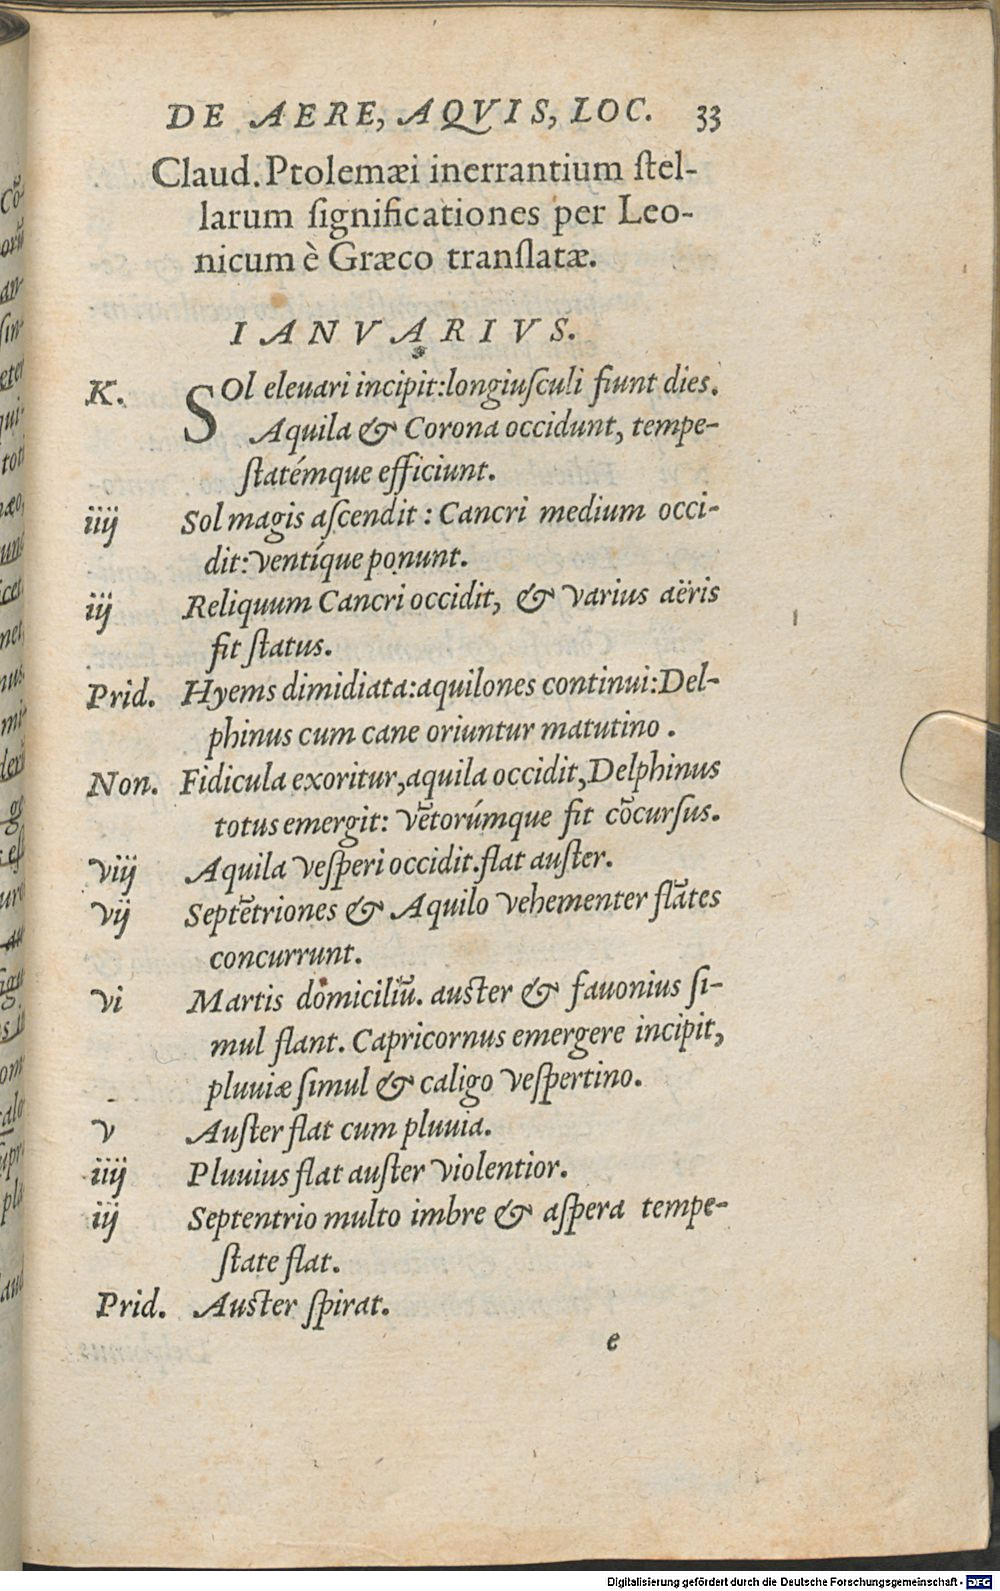 DE AERE, AQVIS, LOC. 33
Claud. Ptolemæi inerrantium ſtel-
larum ſignificationes per Leo-
nicum è Græco tranſlatæ.
IANVARIVS.
K. SOl eleuari incipit: longiuſculi fiunt dies.
Aquila & Corona occidunt, tempe-
ſtatémque efficiunt.
iiij Sol magis aſcendit: Cancri medium occi-
dit: ventíque ponunt.
iij Reliquum Cancri occidit, & varius aëris
fit ſtatus.
Prid. Hyems dimidiata: aquilones continui: Del-
phinus cum cane oriuntur matutino.
Non. Fidicula exoritur, aquila occidit, Delphinus
totus emergit: vētorúmque fit cōcurſus.
viij Aquila veſperi occidit. flat auſter.
vij Septētriones & Aquilo vehementer flātes
concurrunt.
vi Martis domiciliū. auſter & fauonius ſi-
mul flant. Capricornus emergere incipit,
pluuiæ ſimul & caligo veſpertino.
v Auſter flat cum pluuia.
iiij Pluuius flat auſter violentior.
iij Septentrio multo imbre & aſpera tempe-
ſtate flat.
Prid. Auſter ſpirat.
e
Digitalisierung gefördert durch die Deutsche Forschungsgemeinschaft - DFG